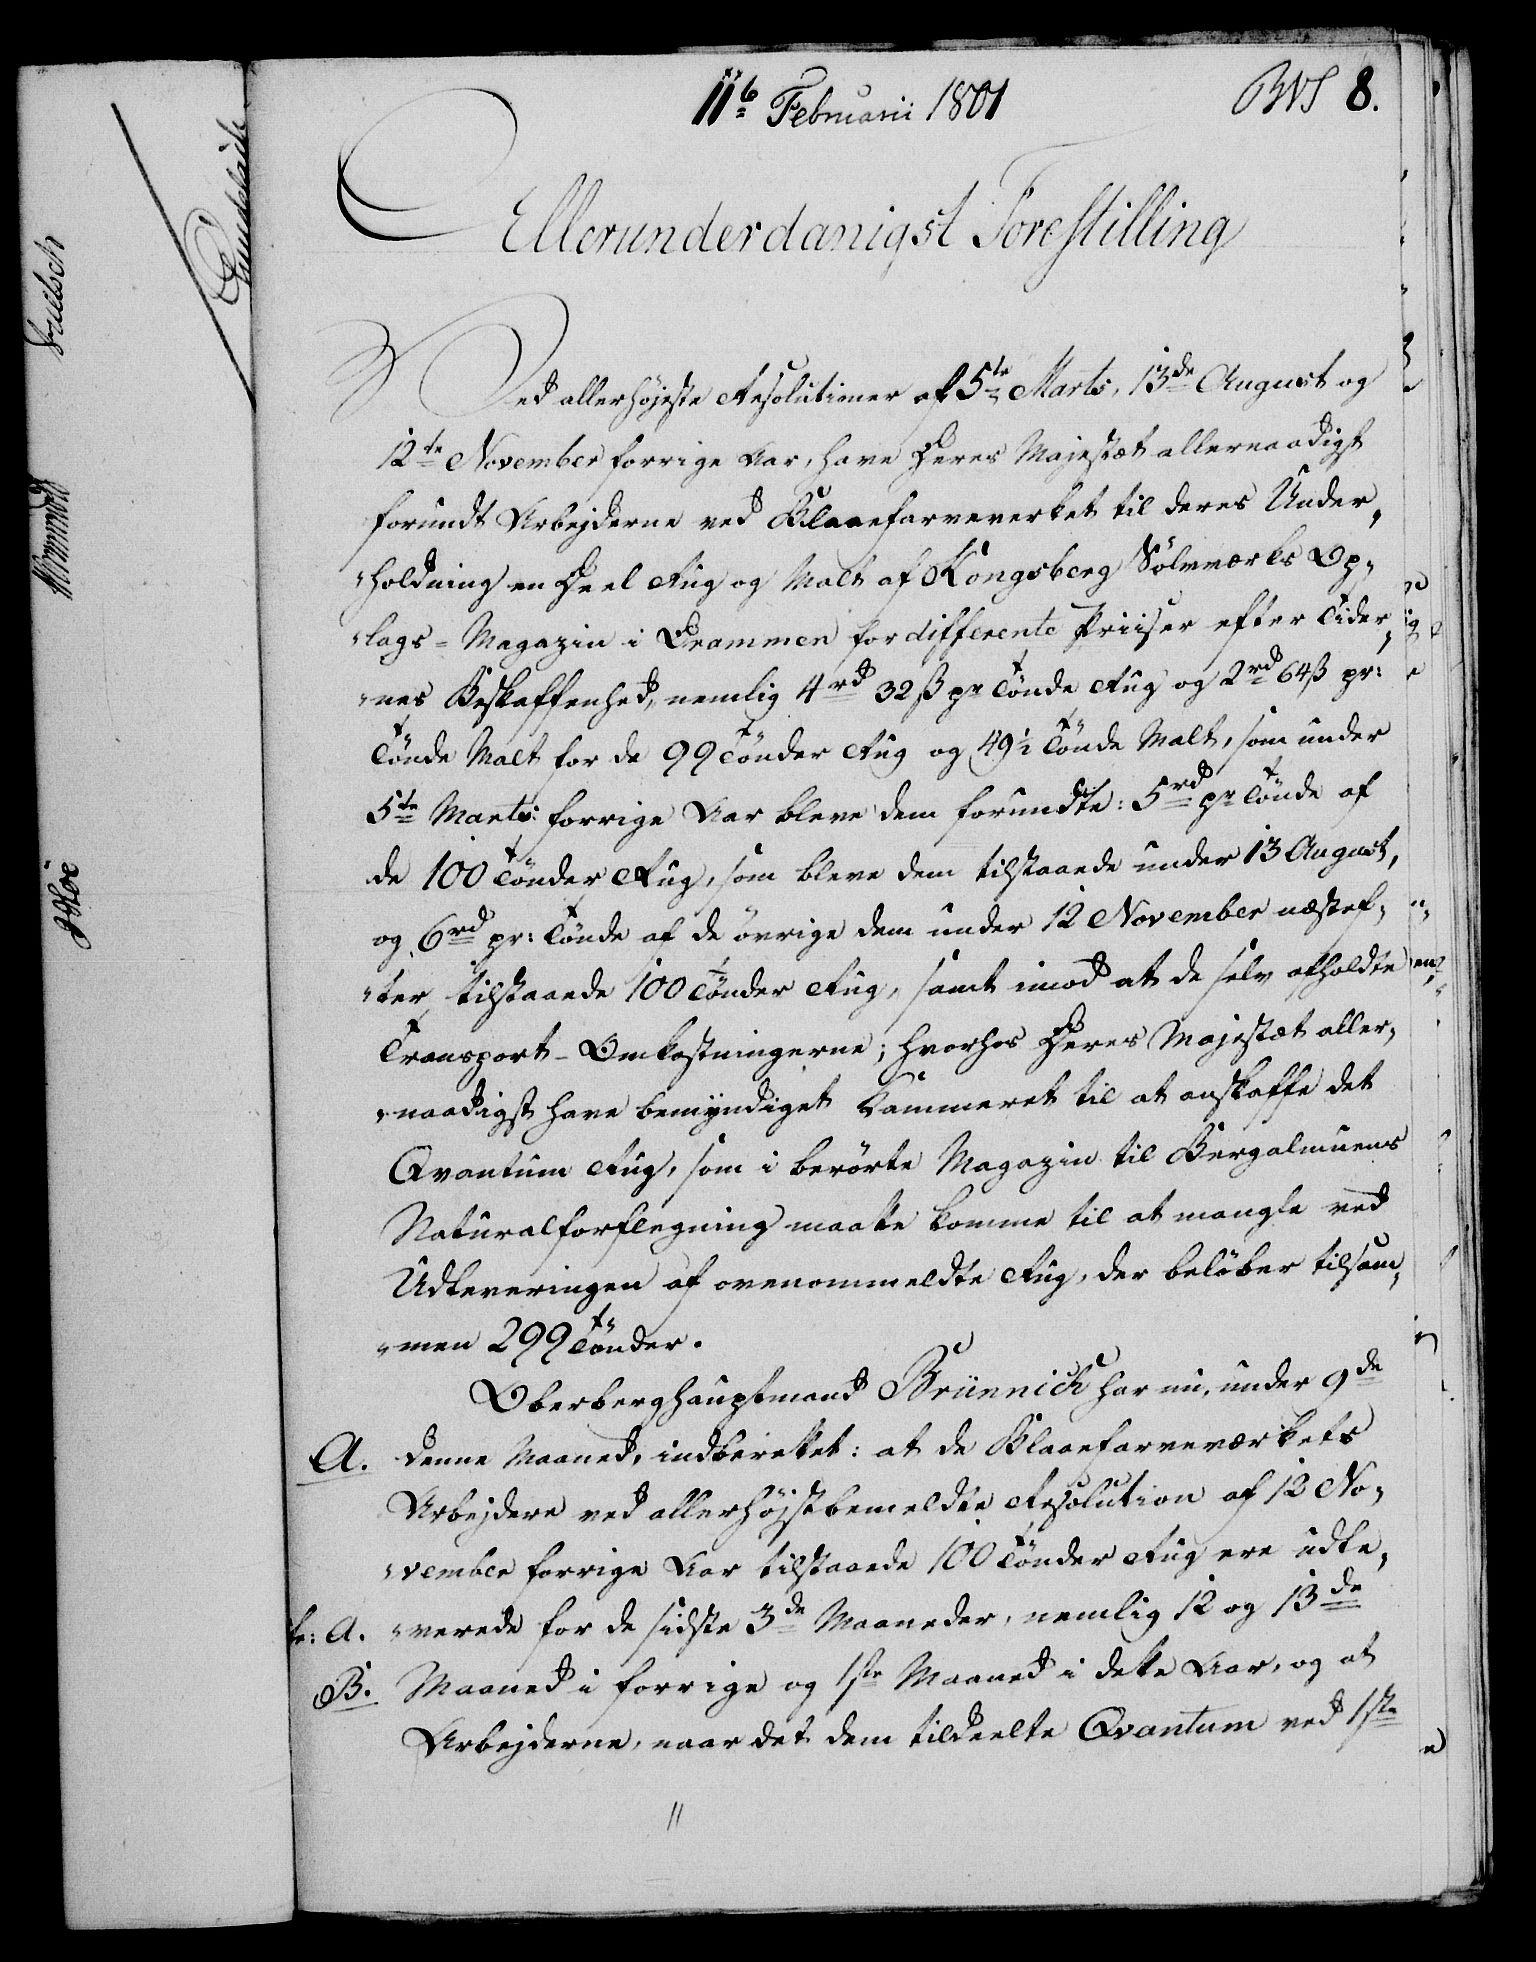 11te Februarii 1801
BVS 8.
Allerunderdanigst Forestilling
Ved allerhöjeste Resolutioner af 5te Marts, 13de August og
12te November forrige Aar, have Deres Majestæt allernaadigst
forundt Arbejderne ved Blaaefarveverket til deres Under-
holdning en Deel Rug og Malt af Kongsberg Sölvværks Op-
lags-Magazin i Drammen for differente Priiser efter Tider-
nes Beskaffenhed, nemlig 4rd 32 ß pr Tönde Rug og 2rd 64ß pr:
Tönde Malt for de 99 Tönder Rug og 49½ Tönde Malt, som under
5te Marts forrige Aar bleve dem forundte: 5rd pr Tönde af
de 100 Tönder Rug, som bleve dem tilstaaede under 13 August,
og 6rd pr: Tönde af de övrige dem under 12 November næstef-
ter tilstaaede 100 Tönder Rug, samt imod at de selv afholdte
Transport-Omkostningerne; hvorhos Deres Majestæt aller-
naadigst have bemÿndiget Kammeret til at anskaffe det
Qvantum Rug, som i berörte Magazin til Bergalmuens
Naturalforflegning maatte komme til at mangle ved
Udleveringen af ovenommeldte Rug, der belöber tilsam-
men 299 Tönder.
Oberberghauptmand Brünnich har nu, under 9de
A. denne Maaned, indberettet: at de Blaaefarveværkets
Arbejdere ved allerhöjstbemeldte Resolution af 12 No-
vember forrige Aar tilstaaede 100 Tönder Rug ere udle-
A. verede for de sidste 3de Maaneder, nemlig 12 og 13de
B. Maaned i forrige og 1ste Maaned i dette Aar, og at
Arbejderne, naar det dem tildeelte Qvantum ved 1ste